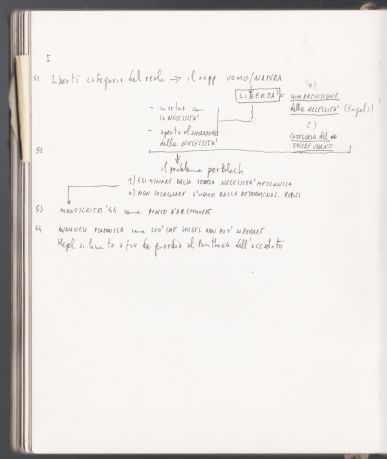 5
51 Libertà categoria del reale → il rapp UOMO/NATURA
LIBERTA' =
1)
COMPRENSIONE
della NECESSITA' (Engels)
- in relaz con
la NECESSITA'
- aperta al
della NECESSITA'
2)
CATEGORIA del
VOLERE UMANO
52
il problema per Bloch
1) ELIMINARE DALLA STORIA NECESSITA' MECCANICA
2) NON SCIOGLIERE L'UOMO DALLE DETERMINAZ. REALI
53 MANOSCRITTI '44 come PUNTO D'ARCHIMEDE
54 ANAMNESI PLATONICA come CIO' CHE HEGEL NON PUO' SUPERARE
Hegel si limita a far da guardia al Pantheon dell'accaduto